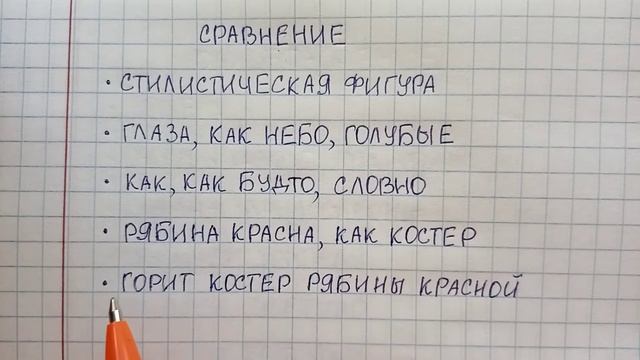 СРАВНЕНИЕ
· СТИЛИСТИЧЕСКАЯ ФИГУРА
· ГЛАЗА, КАК НЕБО, ГОЛУБЫЕ
· КАК, КАК БУДТО, СЛОВНО
· РЯБИНА КРАСНА, КАК КОСТЕР
· ГОРИТ КОСТЕР РЯБИНЫ КРАСНОЙ